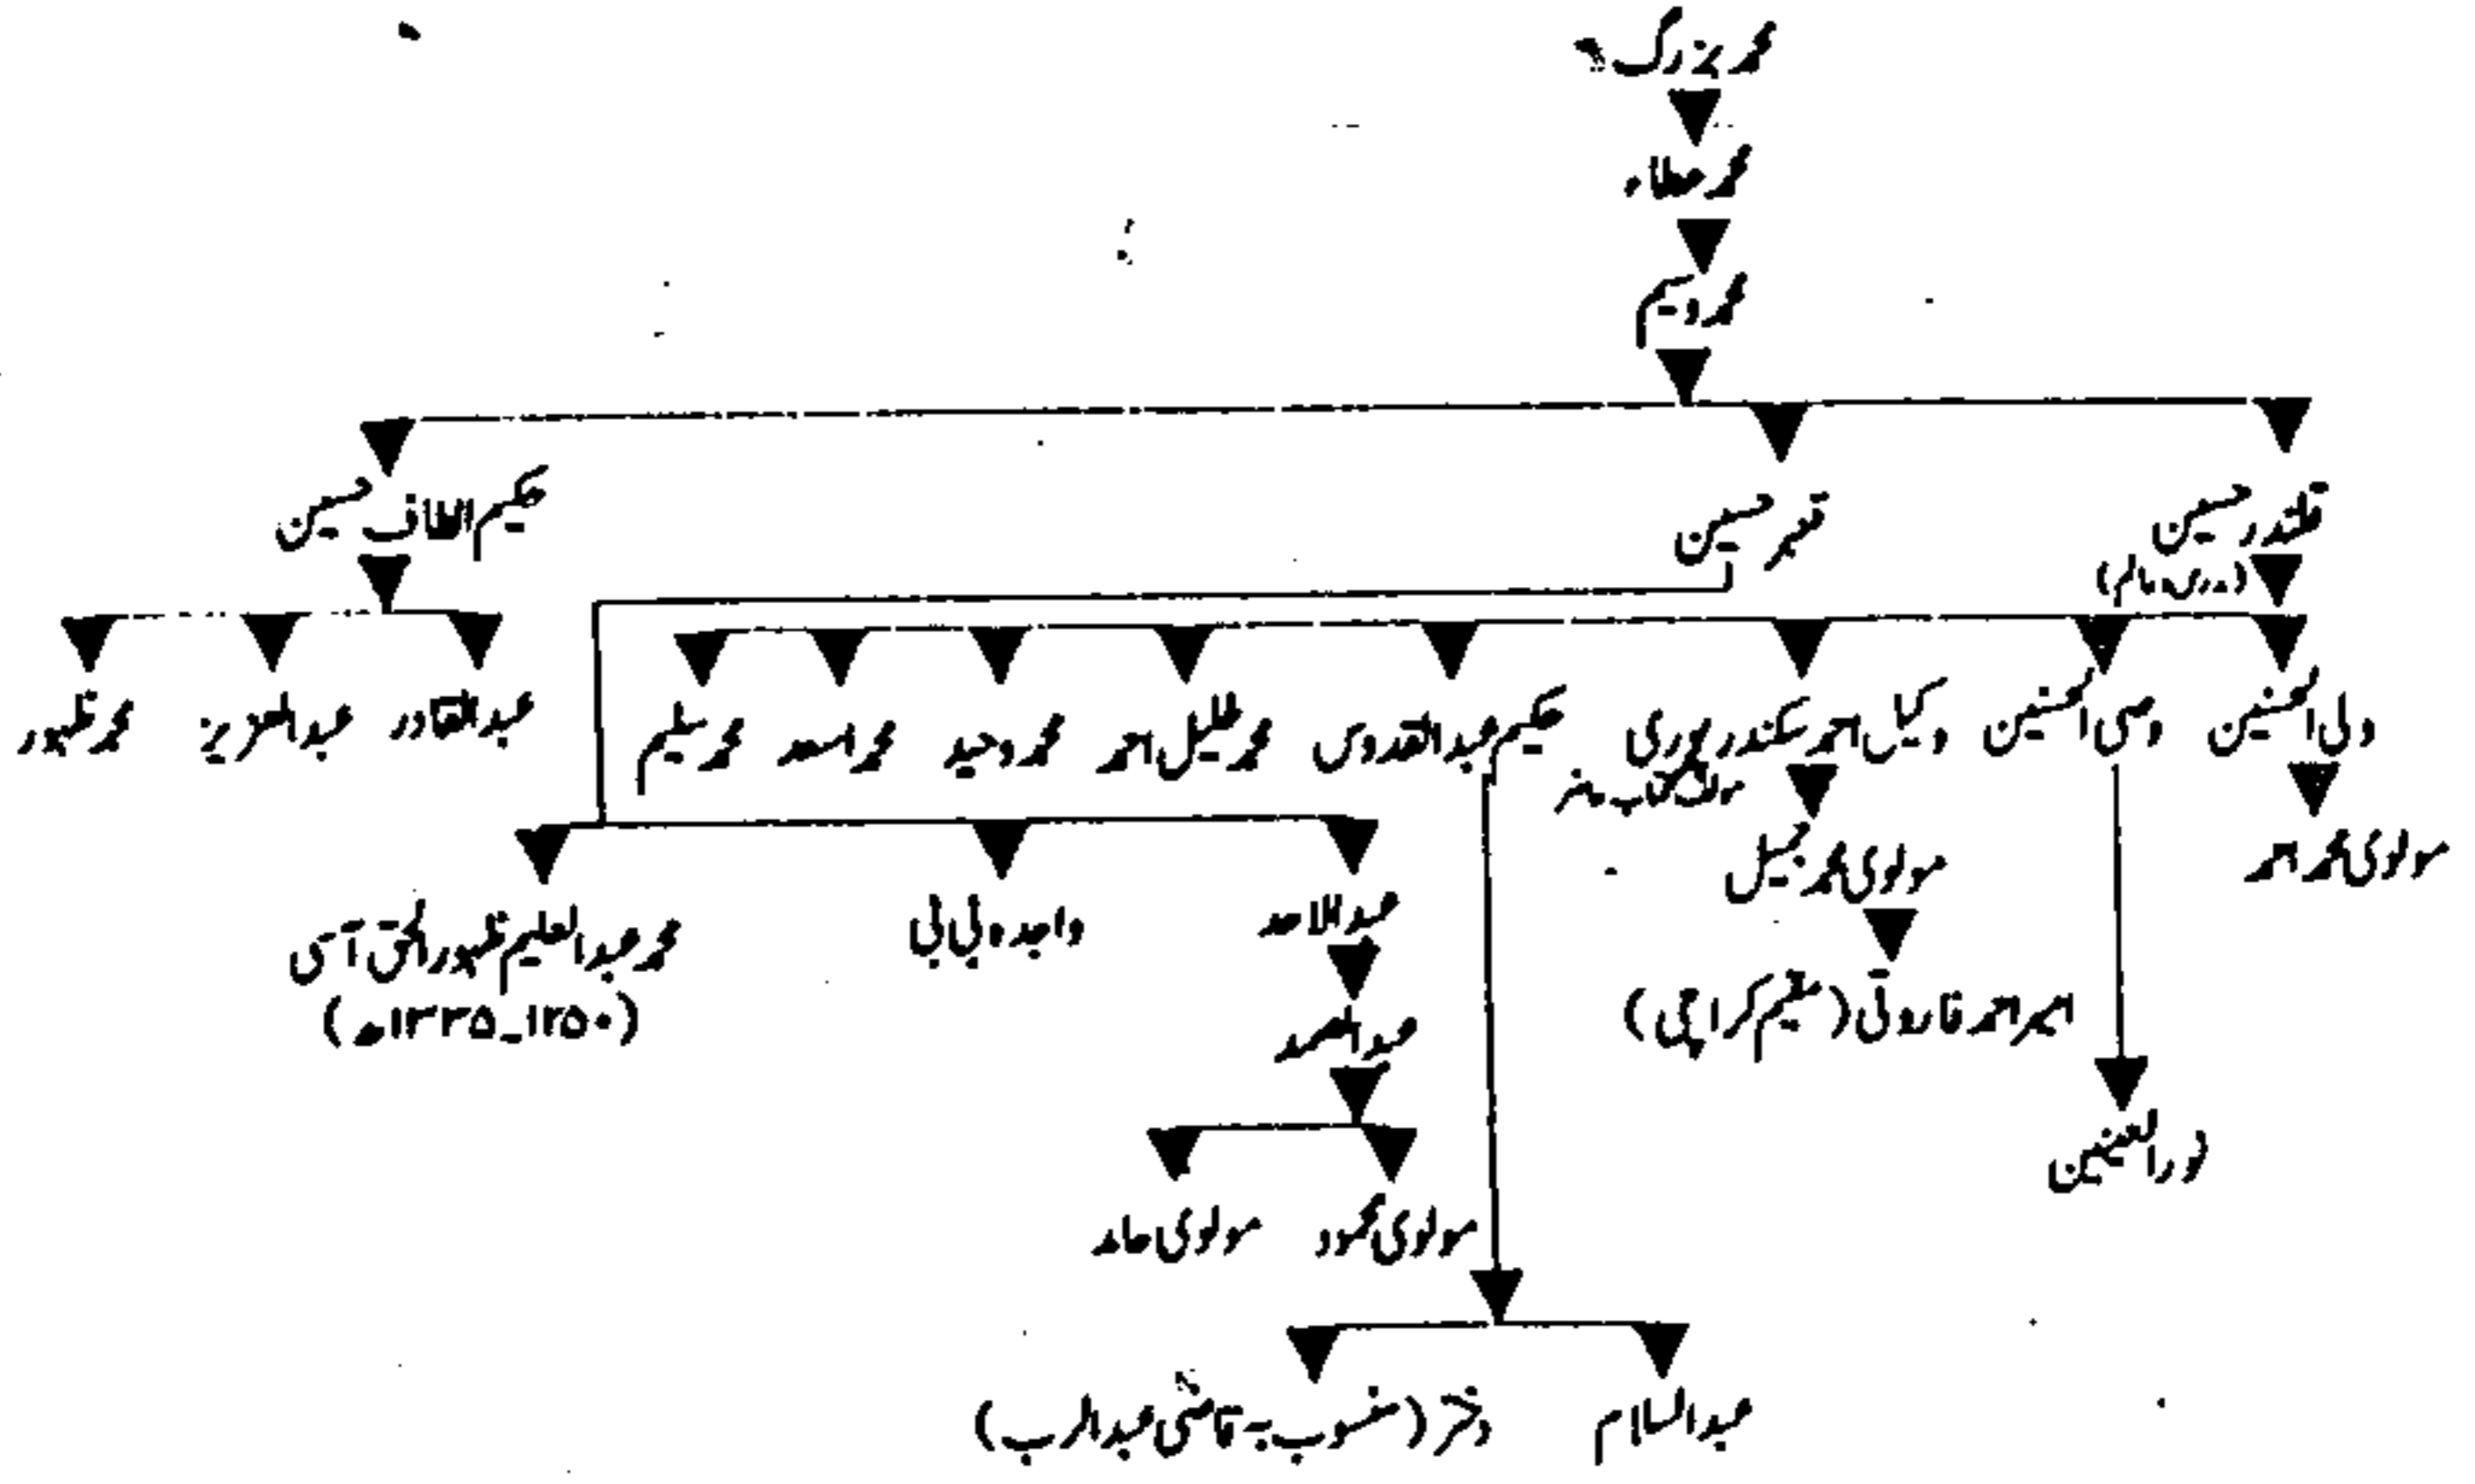 محمد بزرگ
محمد عطاء
محمد وسیم
قلندر حسین
(مدرس، عالم)
قنبر حسین
حکیم الطاف حسین
ولی الحسنین
وصی الحسنین
وکیل احمد سکندر پوری
مولف کتاب ہٰذا
حکیم عبدالقدوس
محمد خلیل احمد
محمد وحید
محمد اسعد
محمد سلیم
عبدالقادر
عبدالعزیز
محمد ظہور
مولوی محمد احمد
مولوی محمد جمیل
عبدالاحد
واجدہ بی بی
محمد عبدالعلیم ظہور الحق آسی
(۱۲۵۰_۱۳۳۵ھ)
عبدالصمد
امیر احمد فاروقی (مقیم کراچی)
نورالعینین
مولوی محمود
مولوی حامد
عبدالسلام
دختر (منسوب بہ قاضی عبدالرب)